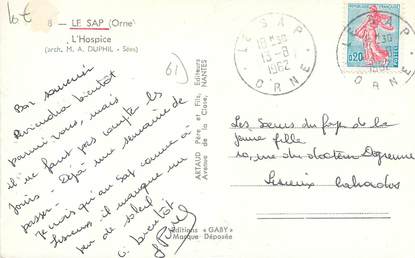 10€
8 – LE SAP (Orne)
L'Hospice
(arch. M. A. DUPHIL - Sées)
61
Bon souvenir
Reviendra bientôt
parmi vous, mais
il ne faut pas compter les
jours - Déjà une semaine de
passée -
Je crois qu'au Sap comme à
Lisieux, il manque un
peu de soleil
à bientôt
ARTAUD Père et Fils, Editeurs
Avenue de la Close, NANTES
Editions « GABY »
Marque Déposée
LE SAP
18 H30
13-8
1962
ORNE
REPUBLIQUE FRANCAISE
0,20
POSTES
LE SAP
ORNE
Les Sœurs du foyer de la
jeune fille
10, rue du docteur Degrenne
Lisieux Calvados